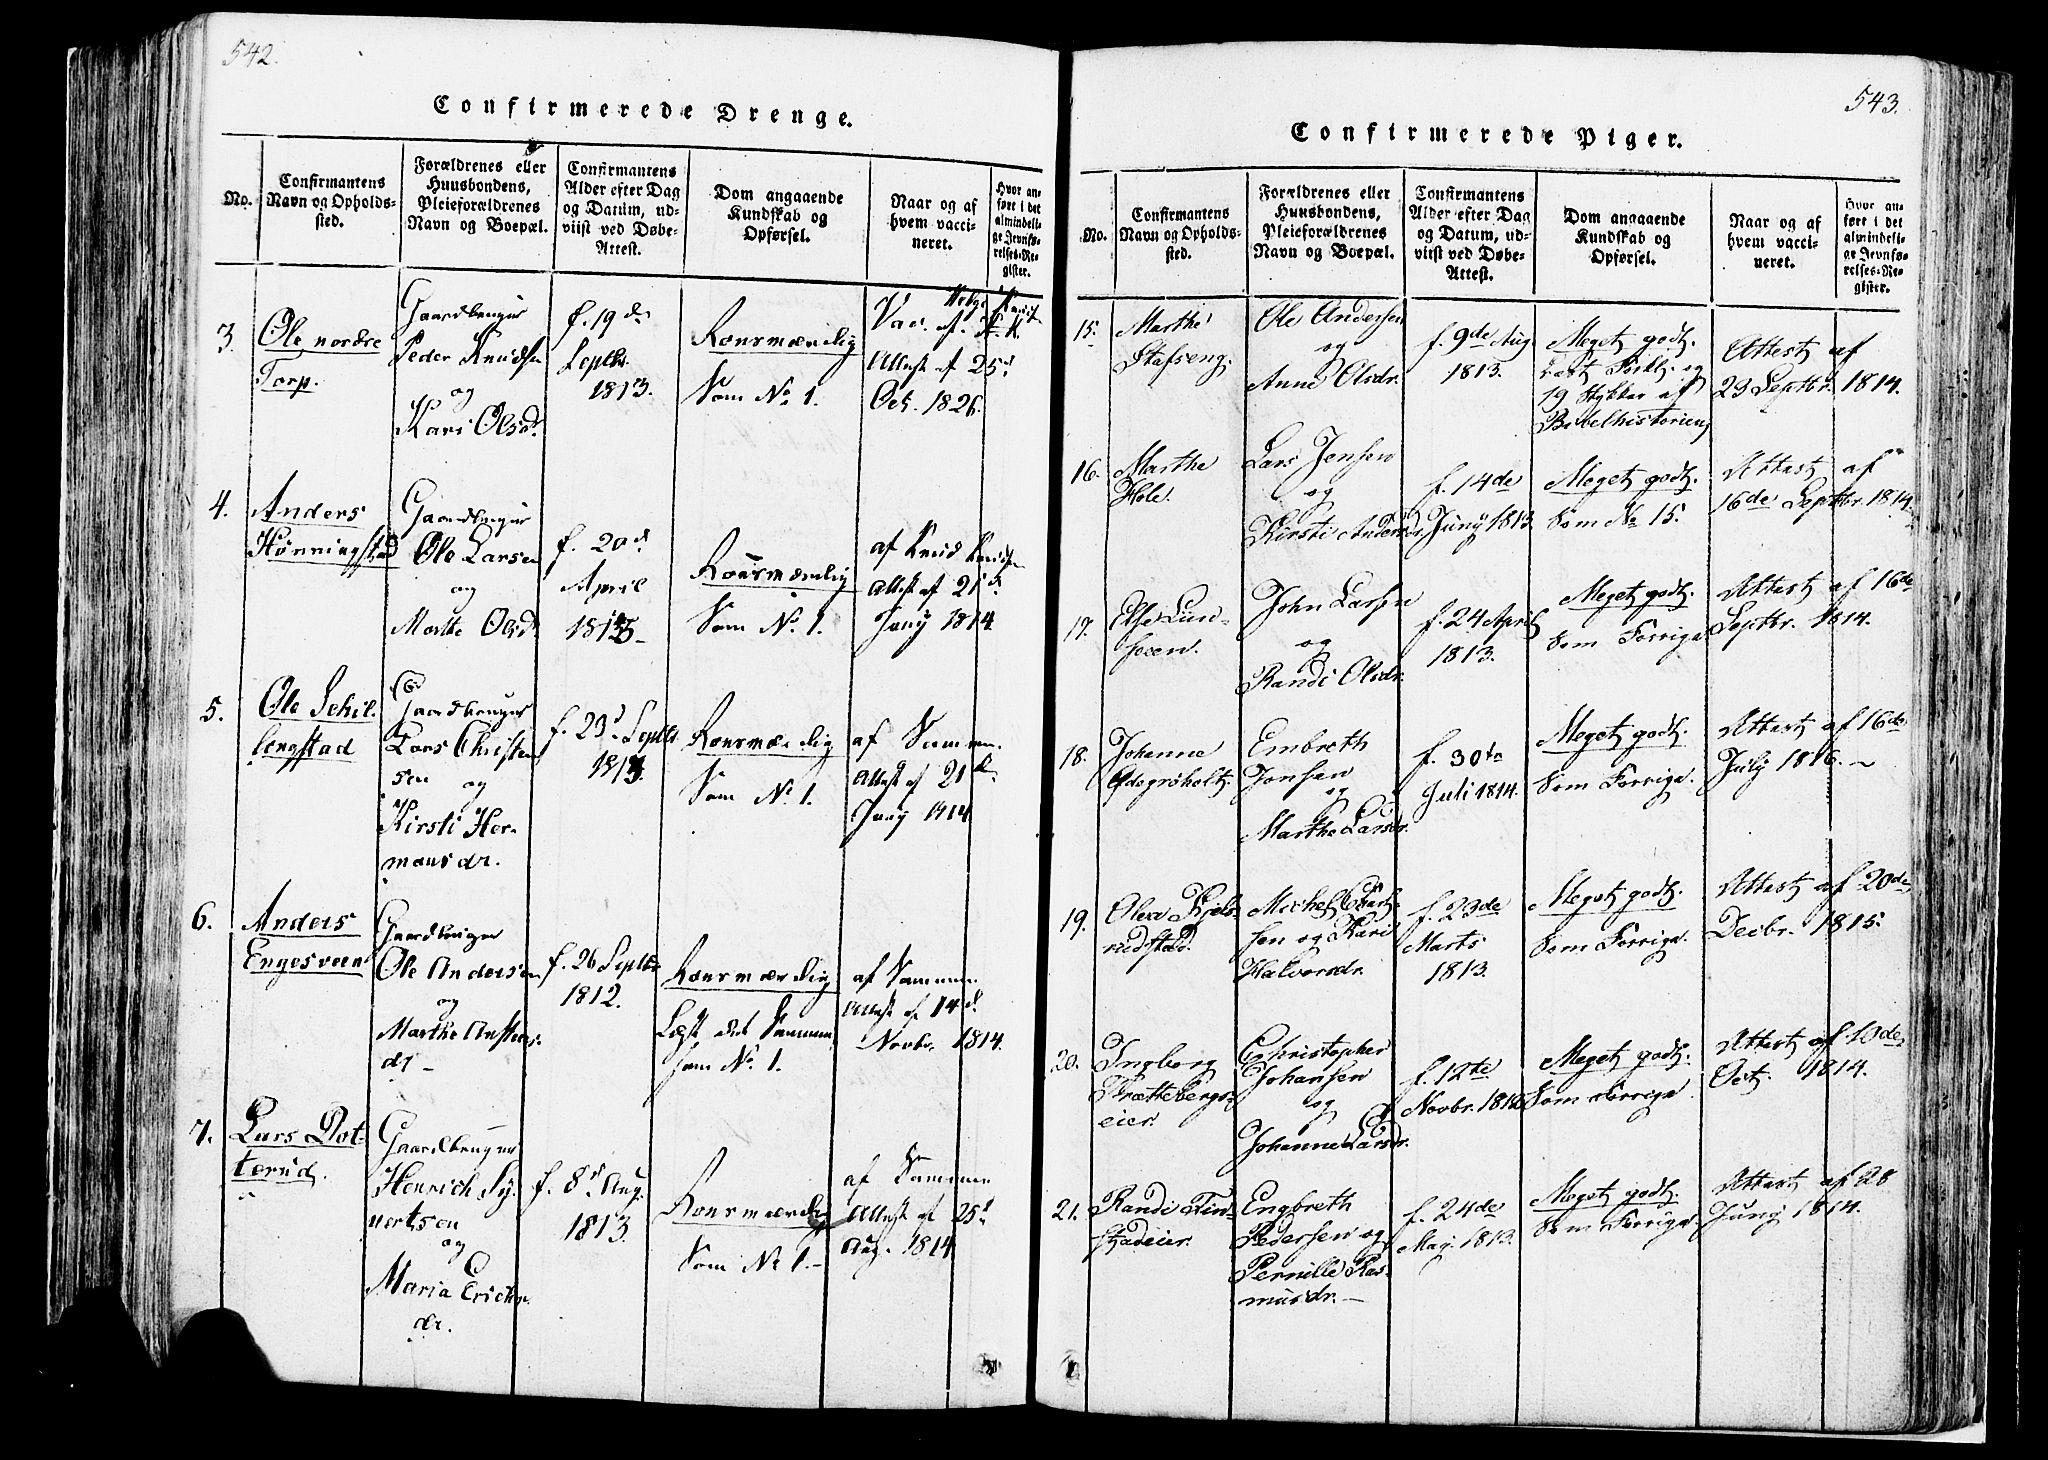 542.
Confirmerede Drenge.
No.
Confirmantens
Navn og Opholds-
sted.
Forældrenes eller
Huusbondens,
Pleieforældrenes
Navn og Boepæl.
Confirmantens
Alder efter Dag
og Datum, ud-
viist ved Døbe-
Attest.
Dom angaaende
Kundskab og
Opførsel.
Naar og af
hvem vacci-
neret.
Hvor an-
ført i det
almindeli-
ge Jevnfø-
relses-Re-
gister.
3.
Ole nordre
Torp.
Gaardbruger
Peder Knudsen
og
Kari Olsd.
f. 19 de
Septbr.
1813.
Roesværdig
Som No. 1.
Vac. af
Attest af 25d
Oct. 1826.
4.
Anders
Hønningstad
Gaardbruger
Ole Larsen
og
Marthe Olsd.
f. 20d.
April
Roesværdig
Som No. 1.
af Knud Knudsen
Attest af 21 d.
Juny 1814
5.
Ole Schil-
lengstad
Gaardbruger
Lars Christen
sen og
Kirsti Her-
mansdr.
f. 23d Septbr
1813.
Roesværdig
Som No. 1.
af Samme
Attest af 21 d.
Juny 1814
6.
Anders
Engesveen
Gaardbruger
Ole Andersen
og
Marthe Anstens
dr -
f. 26 Septbr
1812.
Roesværdig
Læst det Samme
som No. 1.
af Samme
Attest af 14d.
Novbr. 1814.
7.
Lars Dot-
terud.
Gaardbruger
Henrich Sy-
vertsen
og
Maria Erichs
dr.
f. 8d. Aug.
1813.
Roesværdig
Som No 1. -
af Samme
Attest af 25d.
Aug. 1814
543.
Confirmerede Piger.
No.
Confirmantens
Navn og Opholds-
sted.
Forældrenes eller
Huusbondens,
Pleieforældrenes
Navn og Boepæl.
Confirmantens
Alder efter Dag
og Datum, ud-
viist ved Døbe-
Attest.
Dom angaaende
Kundskab og
Opførsel.
Naar og af
hvem vacci-
neret.
Hvor an-
ført i det
almindeli-
ge Jevnfø-
relses-Re-
gister.
15.
Marthe
Stafseng.
Ole Andersen
og
Anne Olsdr.
f. 9de Aug.
1813.
Meget godt.
Læst Forkl. og
19 Stykker af
Bibelhistorien
Attest af
23 Septbr. 1814.
16.
Marthe
Hole.
Lars Jensen
og
Kirsti Andersdr
f. 14de
Juny 1813
Meget godt.
Som No 15.
Attest af
16de Septbr. 1814.
17.
Else Lund-
John Larsen
og
Randi Olsdr.
f. 24 April
1813.
Meget godt.
Som Forrige
Attest af 16de
Septbr. 1814.
18.
Johanne
Embreth
Jonsen
og
Marthe Larsdr.
f. 30te
Juli 1814.
Meget godt.
Som Forrige.
Attest af 16de
July 1816. -
19.
Olea Kjels-
rudstad.
Michel Chart-
sen og Kari
Halvorsdr.
f. 23de
Marts
1813.
Meget godt.
Som Forrige.
Attest af 20de
Decbr. 1815.
20.
Ingborg
Frættebergs-
eier.
Christopher
Johansen
og
Johanne Larsdr.
f. 12te
Novbr.
Meget godt.
Som Forrige
Attest af 10de
Oct. 1814.
21.
Randi Fin-
stadeier.
Engbreth
Pedersen og
Pernille Ras-
musdr. -
f. 24de
Maj. 1813.
Meget godt.
Som Forrige.
Attest af 28
Juny 1814.